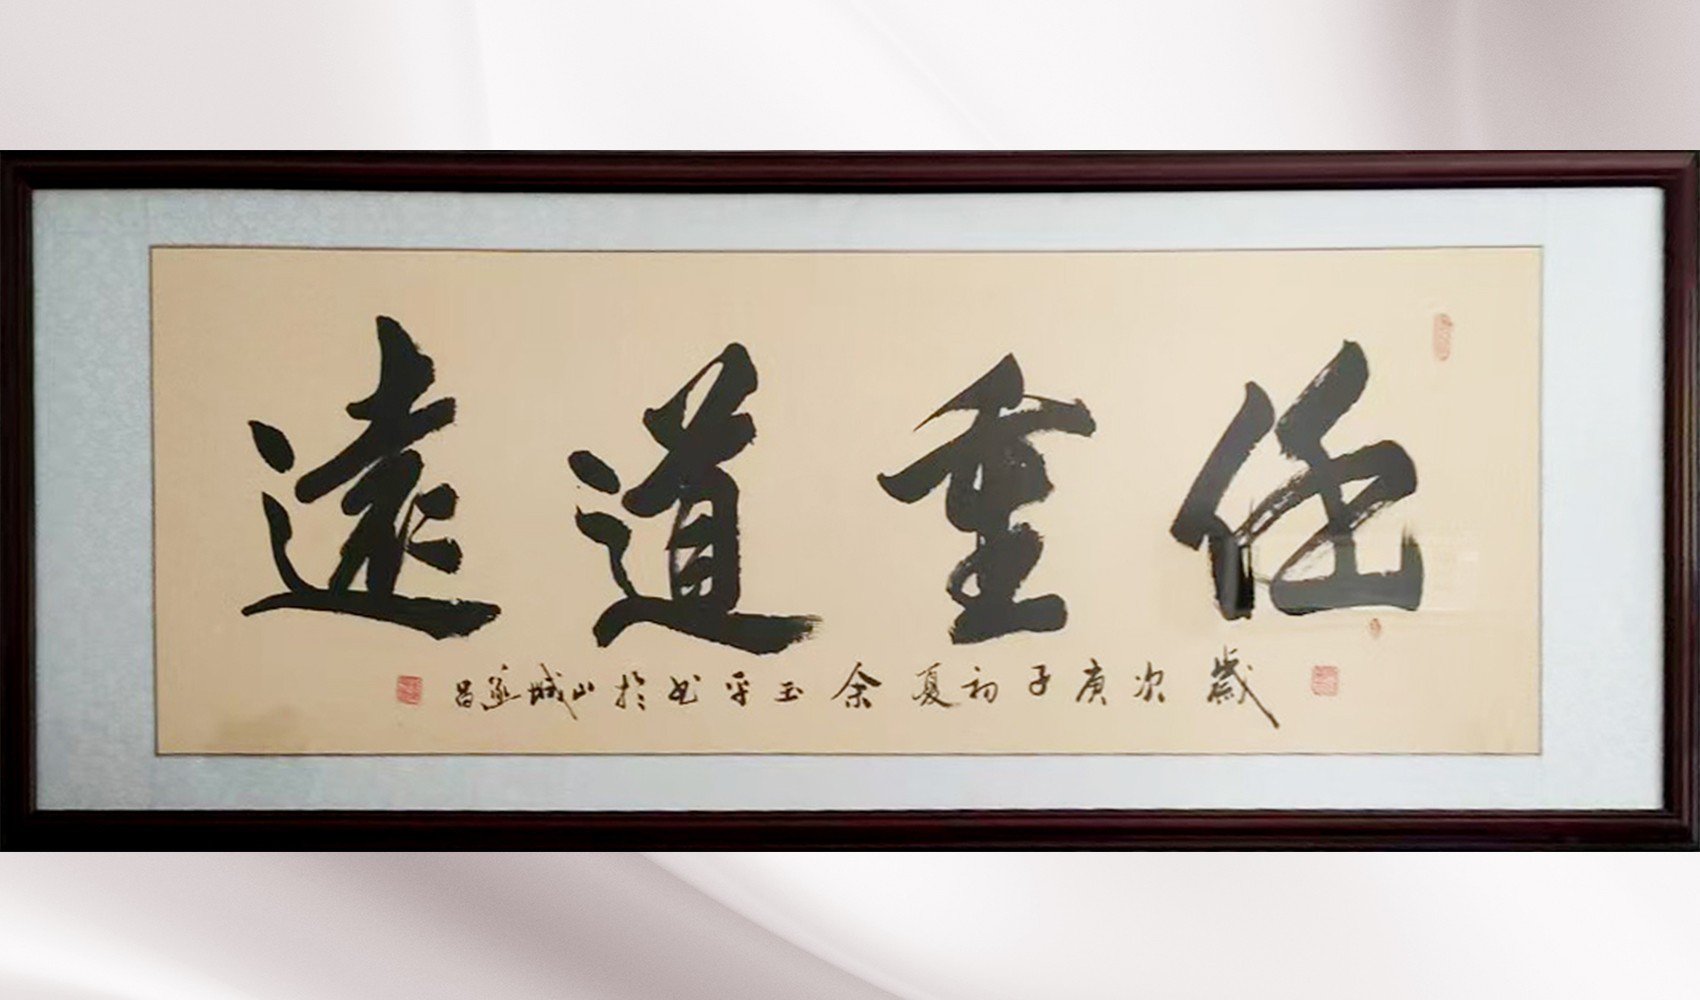 任重道遠
歲次庚子初夏余玉平书於山城遂昌